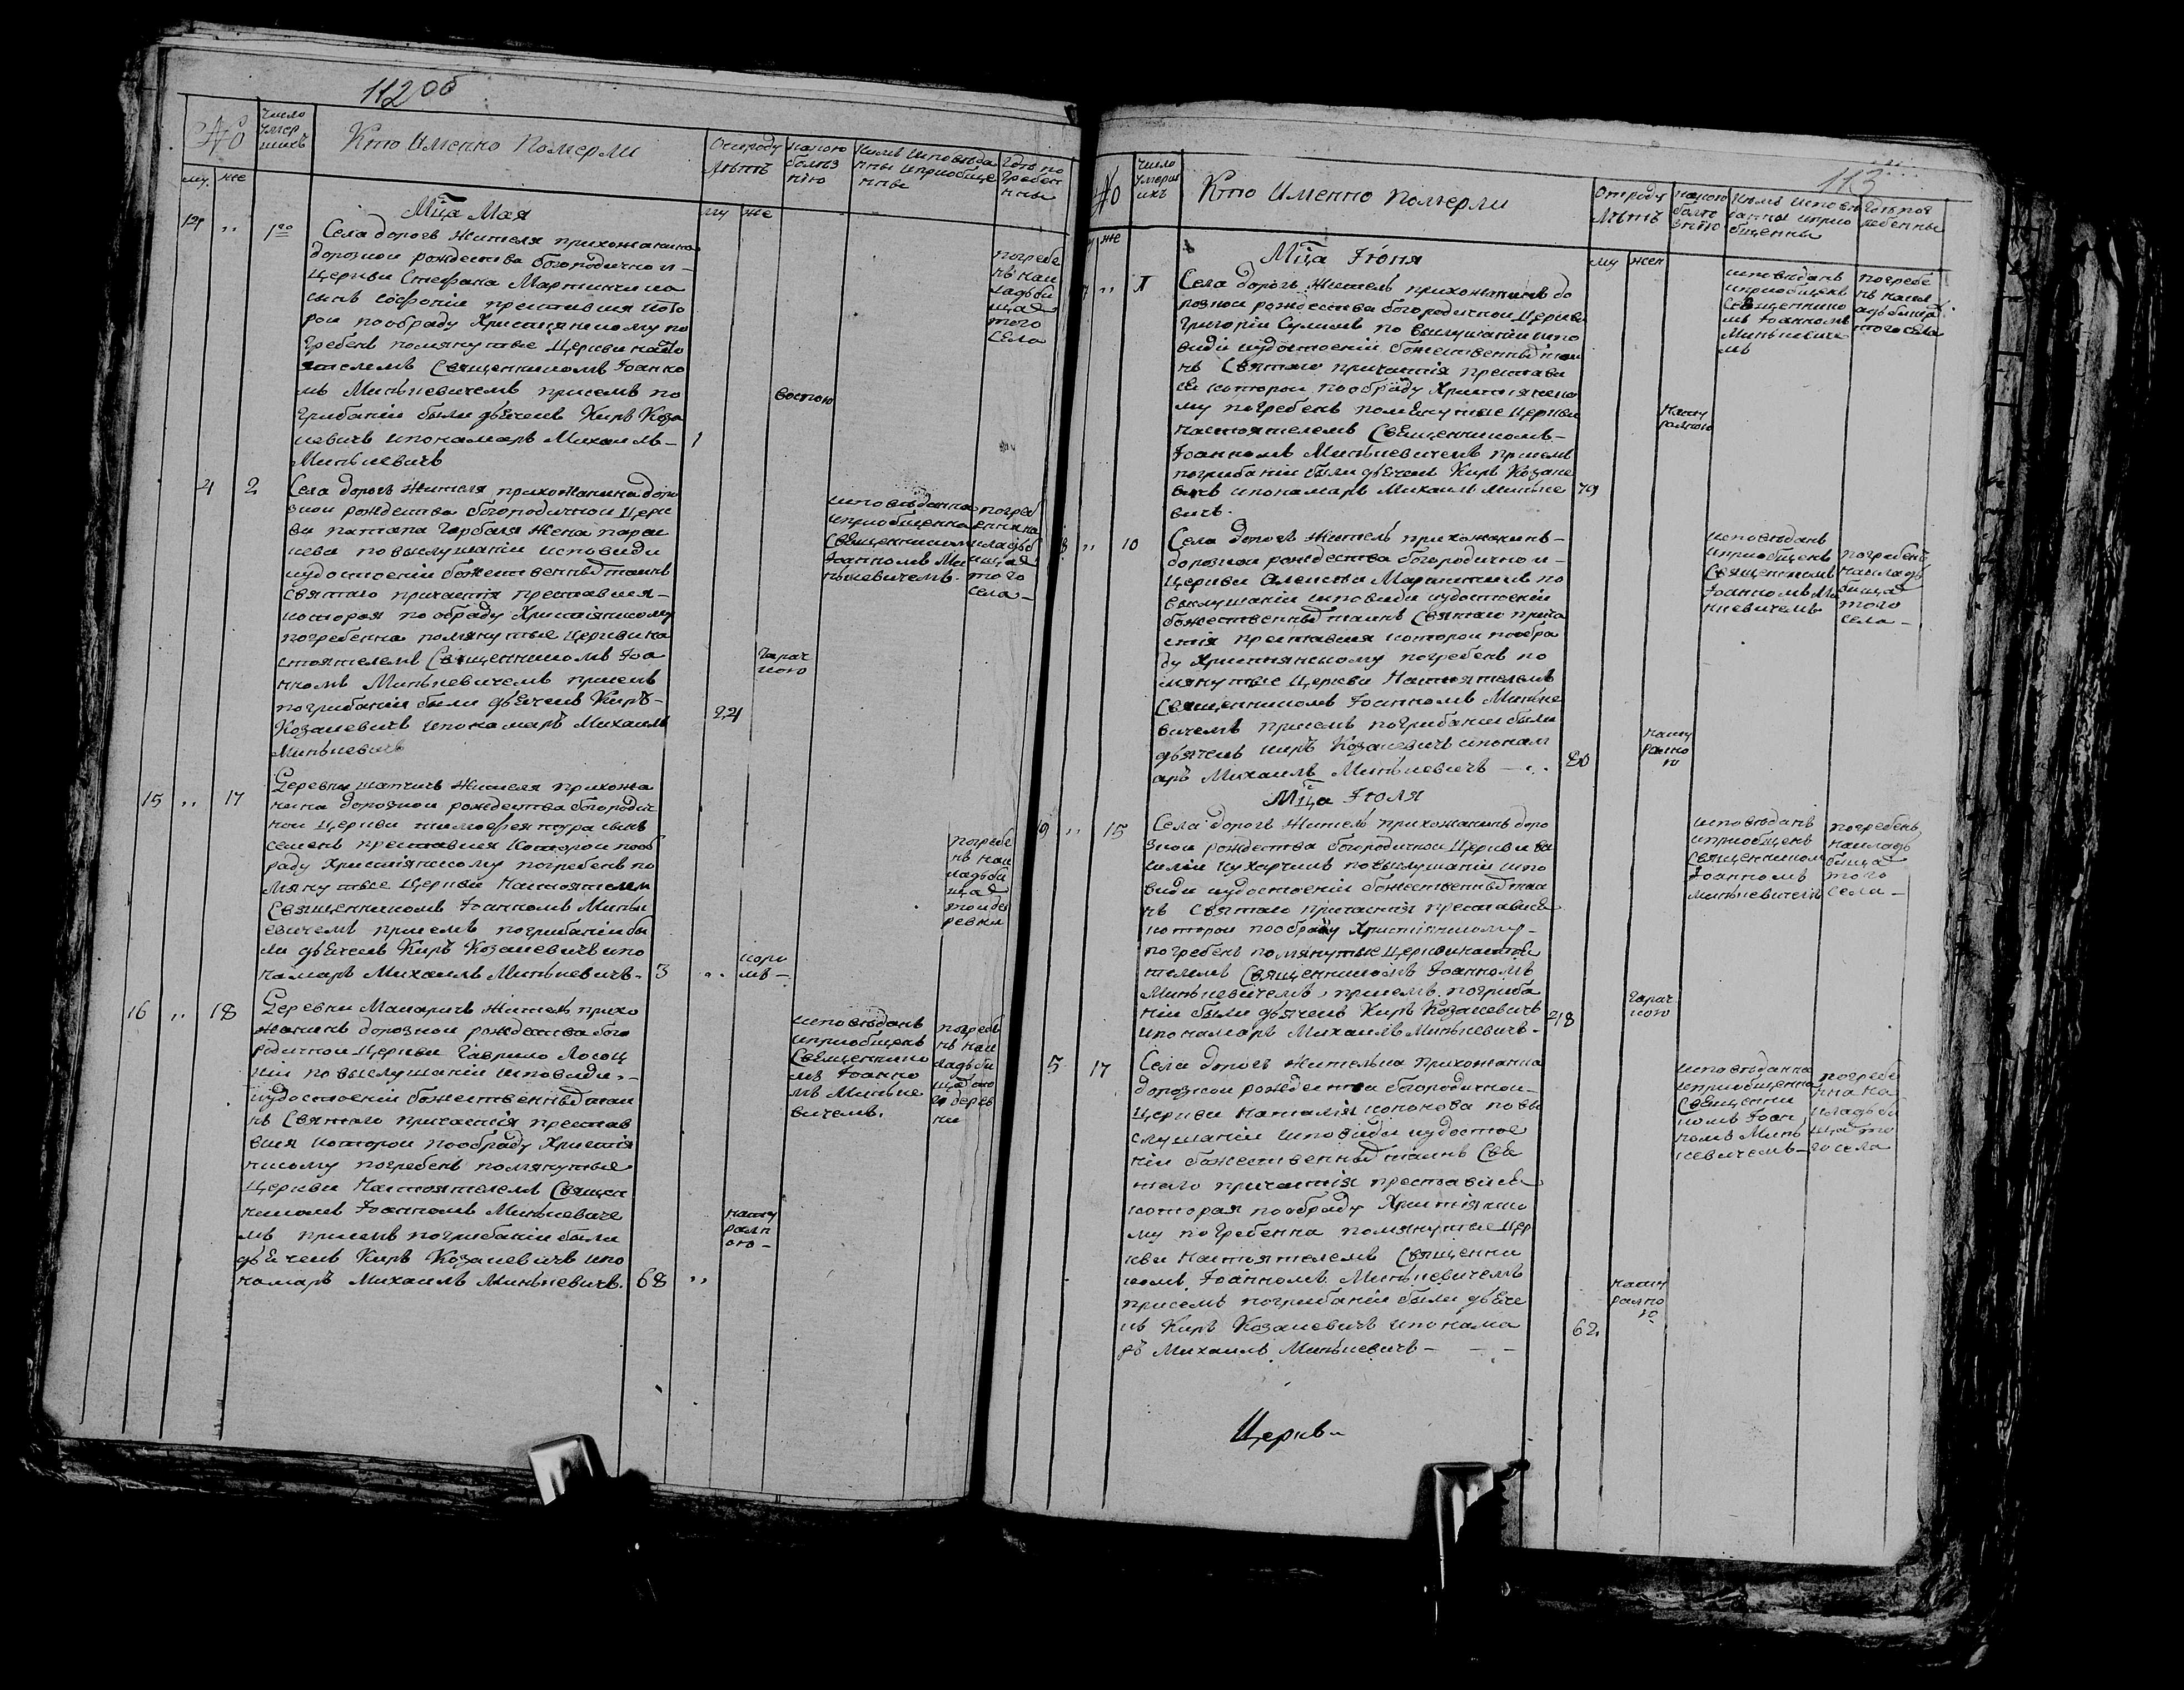 112 об
№
Число умер шихъ
Кто Имено Померли
Отроду Лѣтъ
какою болѣз нію
кемъ исповѣда нны и приобще нны
Гдѣ по гребен ны
му. же
му же
Мца Мая
14 " 1го
Села дорогъ Жителя прихожанина
дорозкои рождества богородичнои
Церкви Стефана
сынъ софоніи преставился кото
рои по обряду Християнскому по
гребенъ помянутыя Церкви насто
ятелемъ Священникомъ Іоанно
мъ Минкевичемъ присемъ по
грибаніи были дьячекъ Киръ Коза
кевичъ ипонамаръ Михаилъ - 1
Минкевичъ
воспою
погребе
нъ накл
адъби
ща
того
села
4 2
Села дорогъ Жителя прихожанина доро
зкои рождества богородичнои Церк
ви Горбаля Жена парас
кева по выслушаніи исповиди
иудостоеніи божественныхъ таинъ
святаго причастія преставися
которая по обряду Християнскому
погребенна помянутыя Церкви на
стоятелемъ Священникомъ Іоа
нномъ Минкевичемъ присемъ
погрибаніи были дьячекъ Киръ
Козакевичъ ипонамаръ Михаилъ 24
Минкевичъ
Гаряч
кою
исповѣданна
иприобщенна
Священникомъ
Іоанномъ Ми
нкевичемъ.
погреб
енна на
кладъб
ища
того
села
15 " 17
Деревни Жителя прихожа
нина дорозкои рождества богородич
нои Церкви сынъ
семенъ преставися которои пооб
ряду Християнскому погребенъ по
мянутыя Церкви Настоятелем
Священникомъ Іоанномъ Минк
евичемъ присемъ погрибаніи бы
ли дьячекъ Киръ Козакевичъ ипо
намаръ Михаилъ Минкевичъ - 3 "
корю
мъ -
погребе
нъ нак
ладъби
ща
тои де
ревни
16 " 18
Деревни Макаричъ Житель прихо
жанинъ дорозкои рождества бого
родичнои Церкви Гаврило Лосоц
кіи по выслушаніи исповиди
иудостоеніи божественныхъ таи
нъ Святаго причастія престав
вися которои пообряду Християн
нскому погребенъ помянутыя
Церкви Настоятелемъ Священ
никомъ Іоанномъ Минкевиче
мъ присемъ погрибаніи были
дьячекъ Киръ Козакевичъ ипо
намаръ Михаилъ Минкевичъ. 68 "
нату
ралн
ою -
исповѣданъ
иприобщенъ
Священнико
мъ Іоанно
мъ Минке
вичемъ.
погребе
нъ нак
ладъби
ща
деревни
113
№
Число умерш ихъ
Кто Именно Померли
Отроду Лѣтъ
какою болѣ знію
Кемъ исповѣ данны иприо общенны
Гдѣ пог ребенны
же
му жен
Мца Іюня
Села дорогъ Житель прихожанинъ до
розкои рождества богородичнои Церкви
Григоріи по выслушаніи испо
види иудостоеніи божественныхъ таи
нъ Святаго причастія престави
ся которои пообряду Християнско
му погребенъ помянутыя Церкви
настоятелемъ Священникомъ
Іоанномъ Минкевичемъ присемъ
погрибаніи были дьячекъ Киръ Козаке
вичъ ипонамаръ Михаилъ Минке 70
вичъ.
нату
ралною
исповѣданъ
иприобщенъ
Священнико
мъ Іоанномъ
Минкевиче
мъ
погребе
нъ накл
адъбища
того села
8 " 10
Села дорогъ Житель прихожанинъ
дорозкои рождества богородичнои
Церкви Алексіи по
выслушаніи исповиди иудостоеніи
божественныхъ таинъ Святаго прича
стія преставися которои пообря
ду Християнскому погребенъ по
мянутыя Церкви Настоятелемъ
Священникомъ Іоанномъ Минке
вичемъ присемъ погрибаніи были
дьячекъ Киръ Козакевичъ ипонам
аръ Михаилъ Минкевичъ - 80
нату
ралною
исповѣданъ
иприобщенъ
Священникомъ
Іоанномъ Ми
нкевичемъ
погребенъ
накладъ
бища
того
села
Мца Іюля
9 " 15
Села дорогъ Житель прихожанинъ доро
зкои рождества богородичнои Церкви ва
силіи Кухарчикъ повыслушаніи испо
види иудостоеніи божественныхъ таи
нъ Святаго причастія преставися
которои пообряду Християнскому
погребенъ помянутыя Церкви настоя
телемъ Священникомъ Іоанномъ
Минкевичемъ, присемъ погриба
ніи были дьячекъ Киръ Козакевичъ 48
ипонамаръ Михаилъ Минкевичъ
Гаряч
кою
исповѣданъ
иприобщенъ
Священником
Іоанномъ
Минкевичемъ
погребенъ
накладъ
бища
того
села -
5 17
Села дорогъ Жителька Прихожанка
дорозкои рождества богородичнои
Церкви Наталия по вы
слушаніи исповиди иудостое
ніи божественныхъ таинъ Свя
таго причастія преставися
которая пообряду Християнско
му погребенна помянутыя Цер
кви Настоятелемъ Священни
комъ Іоанномъ Минкевичемъ
присемъ погрибаніи были дьяче
къ Киръ Козакевичъ ипонама 62.
ръ Михаилъ Минкевичъ -
нату
ралною
исповѣданна
иприобщенна
Священни
комъ Іоан
номъ Минь
кевичемъ
погребе
нна на
кладъби
ща то
го села
Церкви